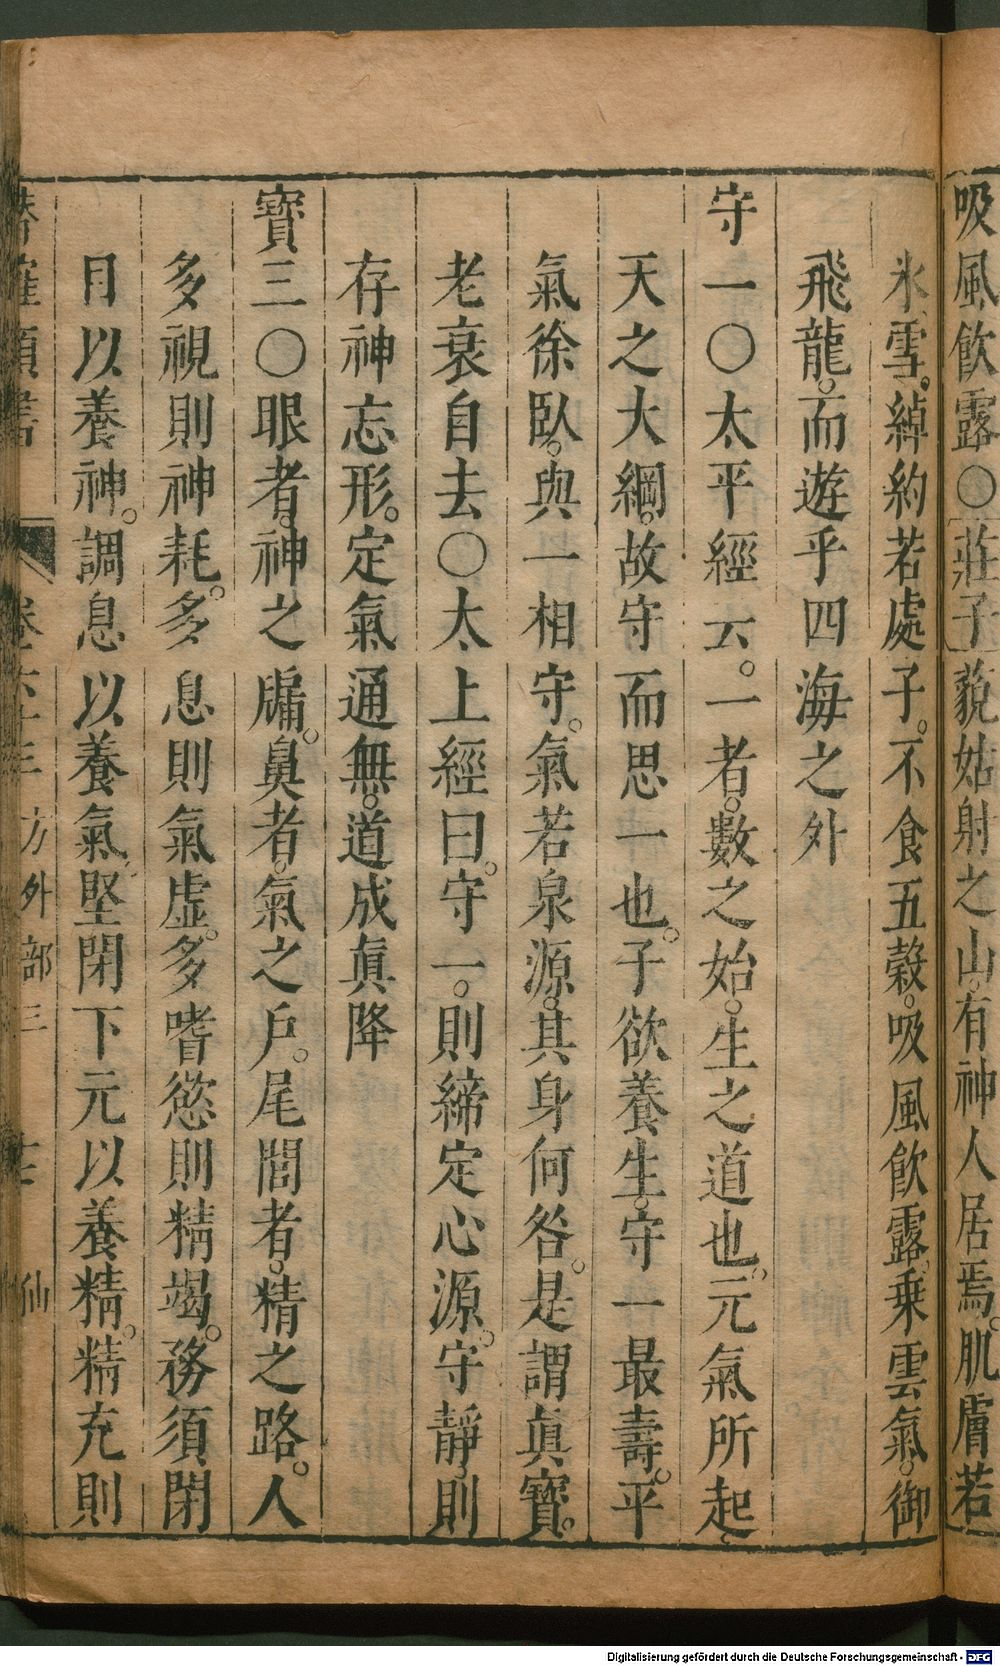 吸風飲露〇莊子藐姑射之山有神人居焉。肌膚若
氷雪。綽約若處子。不食五穀。吸風飲露、乘雲氣。御
飛龍。而遊乎四海之外
守一〇太平經云。一者。數之始。生之道也。元氣所起、
天之大綱。故守而思一也。子欲養生。守一最壽。平
氣徐臥。與一相守。氣若泉源。其身何咎。是謂眞寶。
老衰自去〇太上經曰。守一。則締定心源。守靜。則
存神忘形。定氣通無。道成眞降
寶三〇眼者。神之牖。鼻者。氣之戶。尾閭者。精之路。人
多視則神耗。多息則氣虛。多嗜慾則精竭。務須閉
目以養神。調息以養氣。堅閉下元以養精。精充則
卷六十三 方外部三 仙
Digitalisierung gefördert durch die Deutsche Forschungsgemeinschaft - DFG